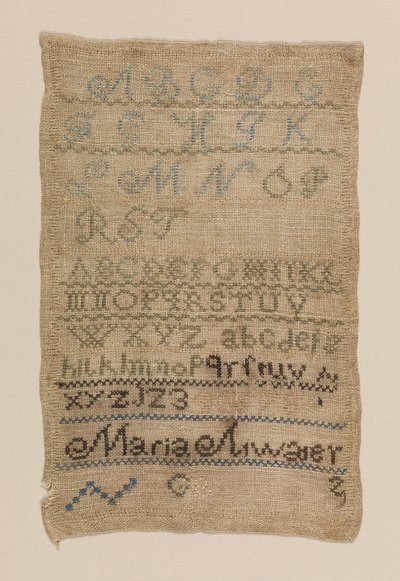 A B C D E
F G H I K
L M N O P
R S T
A B C D E F G H I K L
M N O P Q R S T U V
W X Y Z a b c d e f g
h i k l m n o p q r s t u v
x y z 1 2 3
Maria